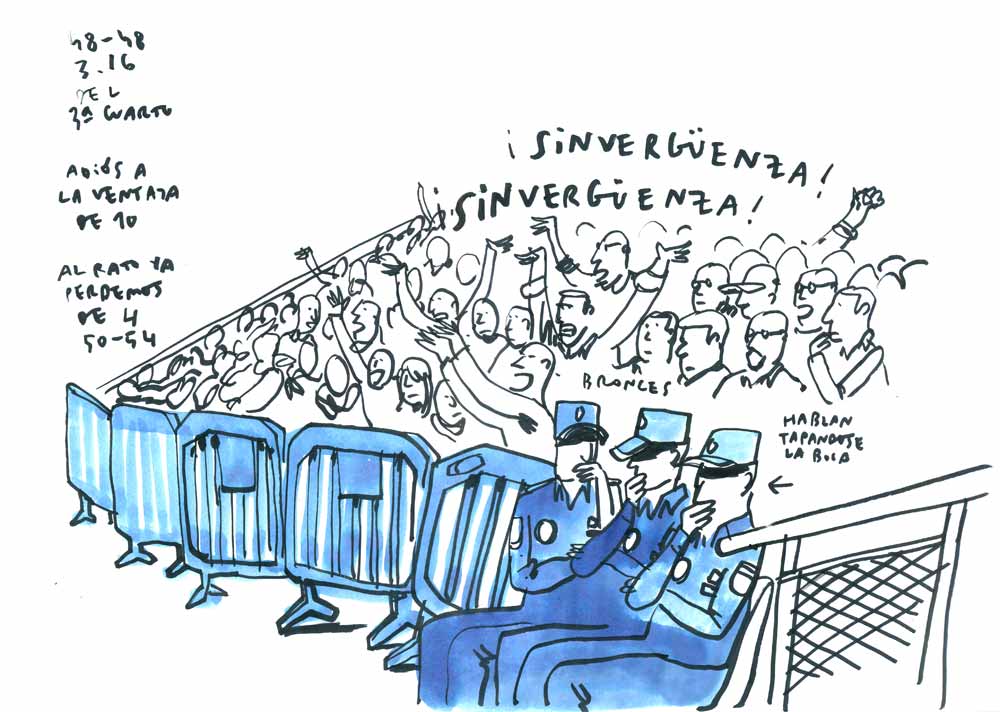 48-48
3.16
DEL
3ª CUARTO
ADIÓS A
LA VENTAJA
DE 10
AL RATO YA
PERDEMOS
DE 4
50-54
¡SINVERGÜENZA!
¡SINVERGÜENZA!
BRONCES
HABLAN
TAPANDOSE
LA BOCA